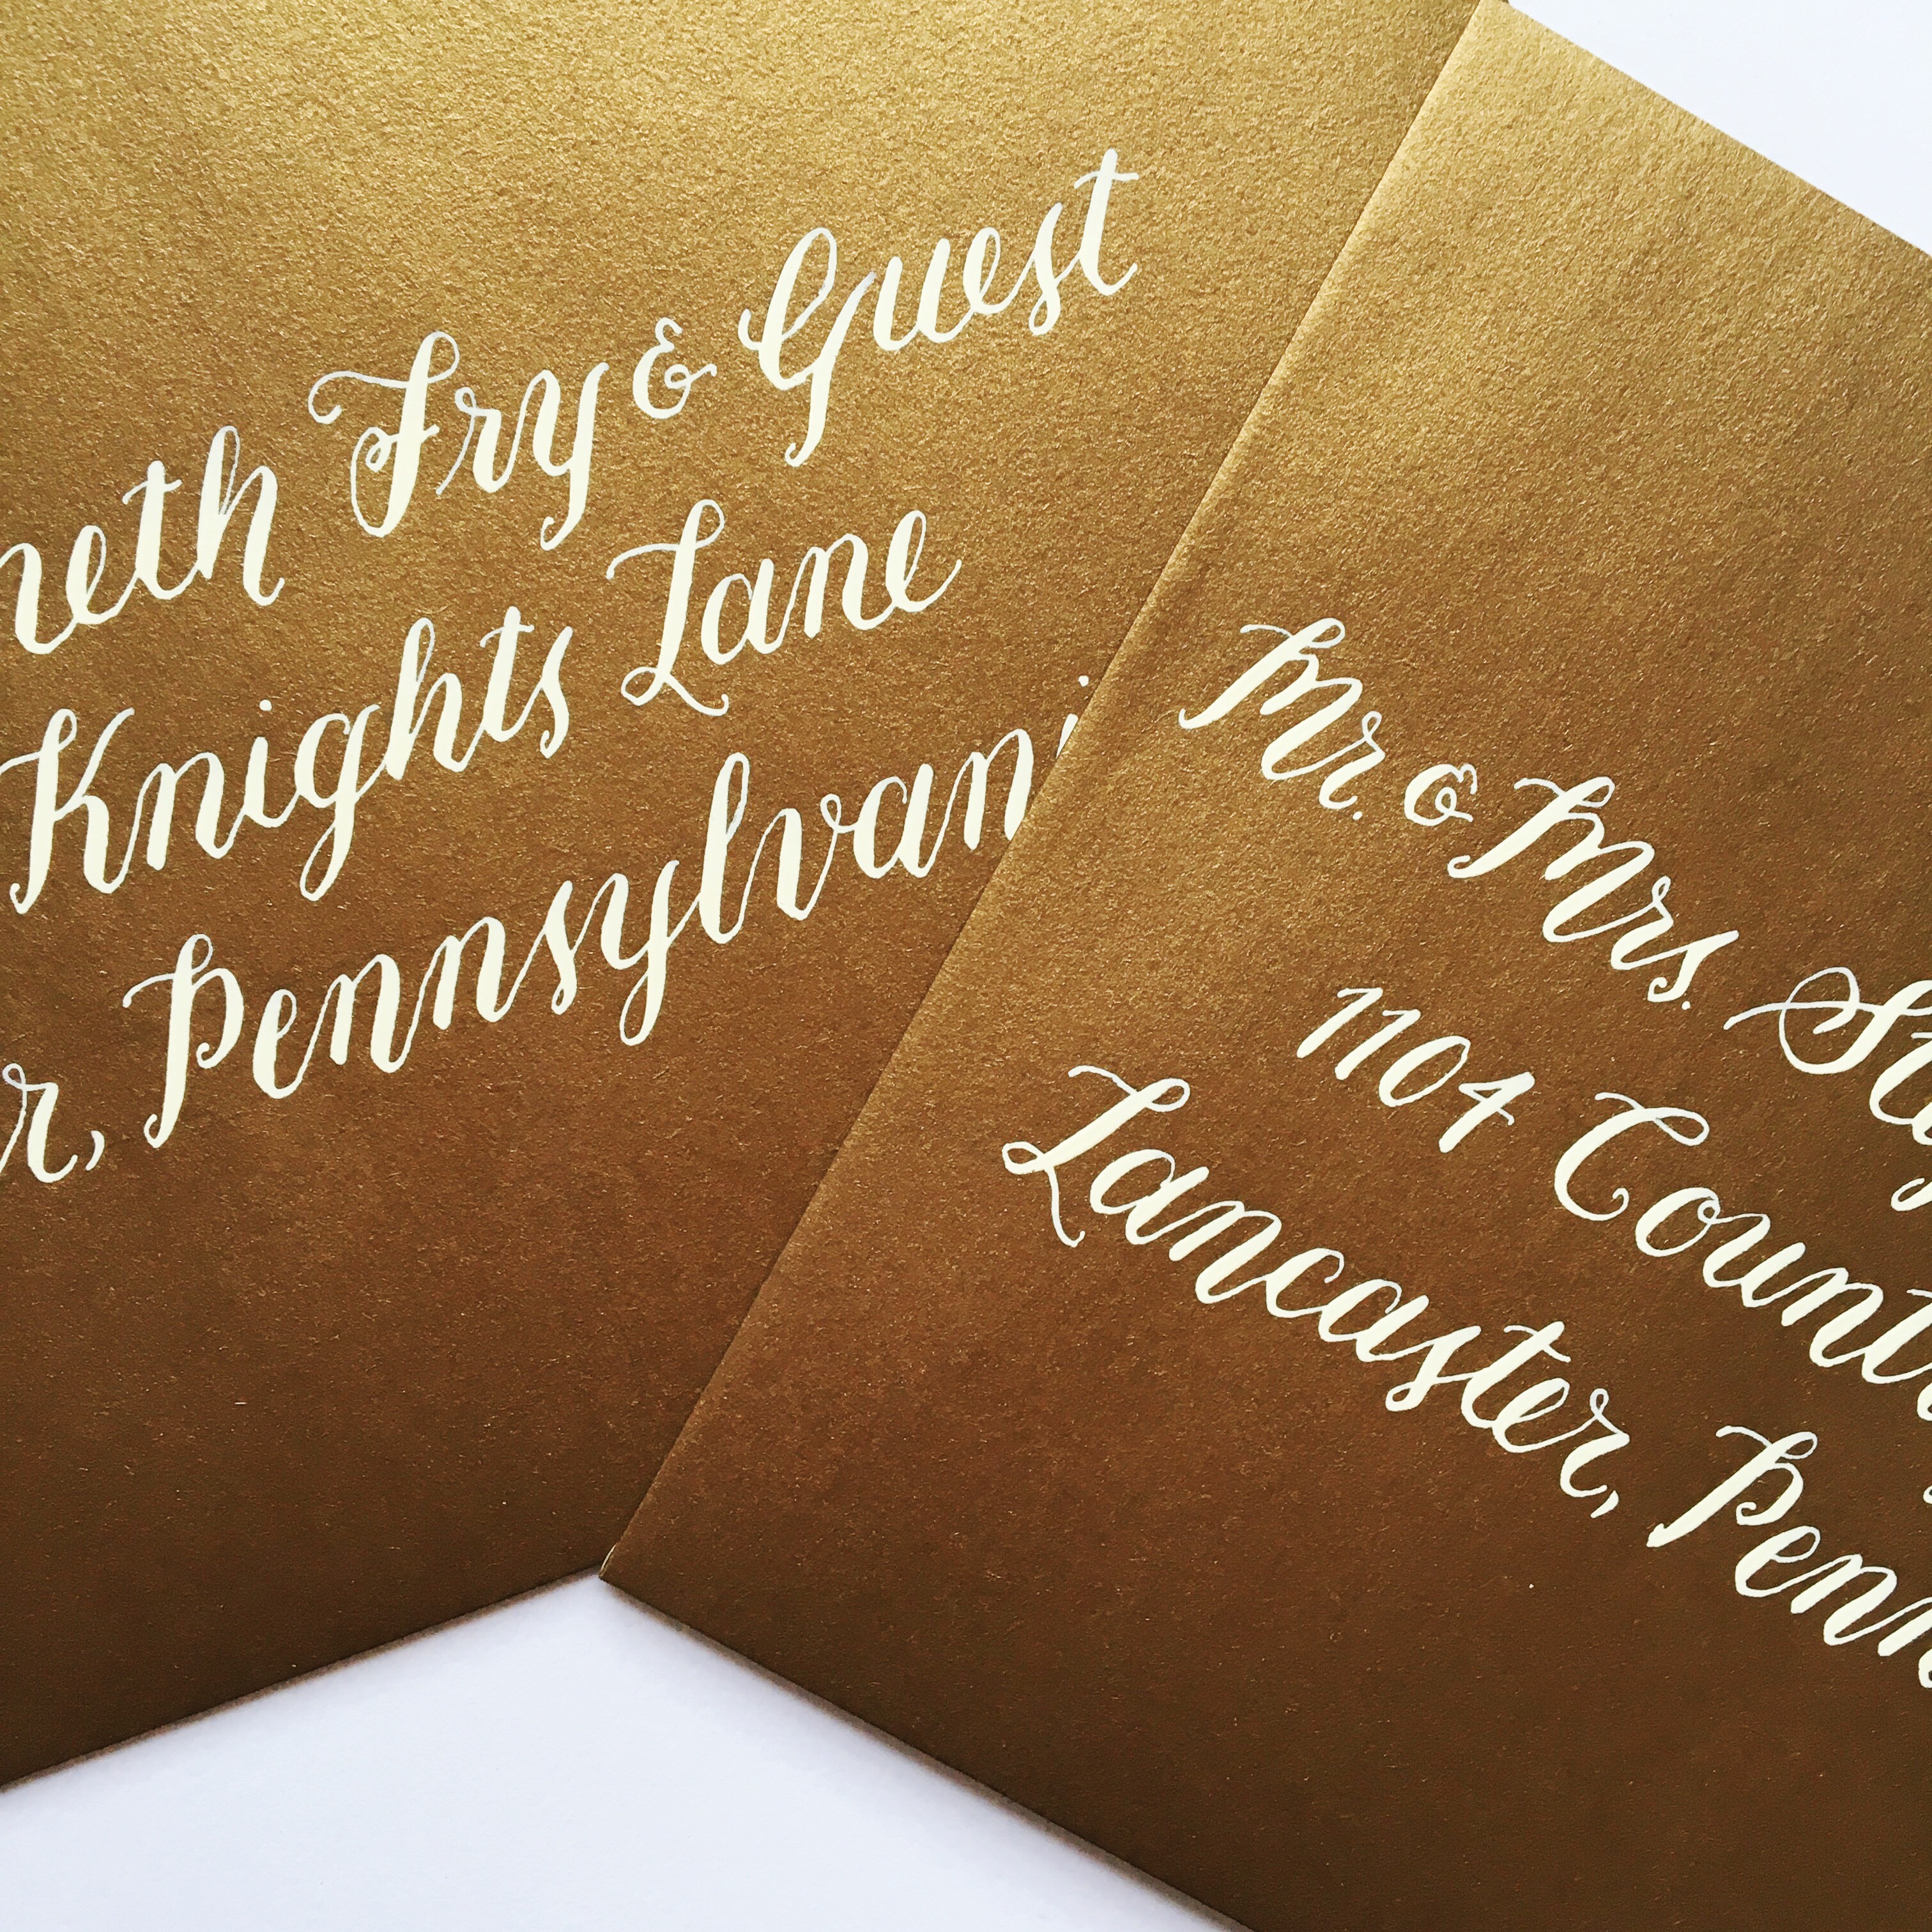 neth Fry & Guest
Knights Lane
r, Pennsylvani
Mr. & Mrs. St
1104 Count
Lancaster, Penn